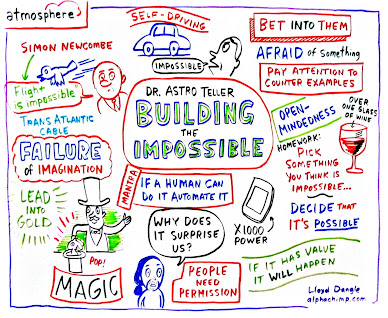 atmosphere
SELF-DRIVING
BET INTO THEM
SIMON NEWCOMBE
IMPOSSIBLE
AFRAID of Something
PAY ATTENTION TO
COUNTER EXAMPLES
Flight
is impossible
DR. ASTRO TELLER
BUILDING
THE
IMPOSSIBLE
TRANS ATLANTIC
CABLE
FAILURE
OF IMAGINATION
OPEN-
MINDEDNESS
OVER
ONE GLASS
OF WINE
HOMEWORK:
PICK
SOMETHING
YOU THINK IS
IMPOSSIBLE...
DECIDE THAT
IT'S POSSIBLE
MANTRA
IF A HUMAN CAN
DO IT AUTOMATE IT
LEAD
INTO
GOLD
POP!
MAGIC
WHY DOES
IT SURPRISE
US?
X1000
POWER
PEOPLE
NEED
PERMISSION
IF IT HAS VALUE
IT WILL HAPPEN
Lloyd Dangle
alphachimp.com